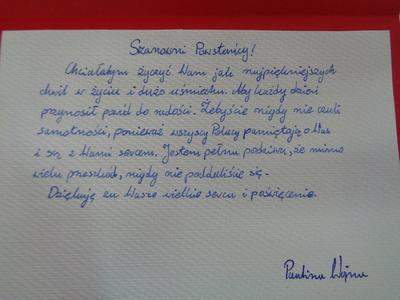 Szanowni Powstańcy!
Chciałabym życzyć Wam jak najpiękniejszych
chwil w życiu i dużo uśmiechu. Aby każdy dzień
przynosił powód do radości. Żebyście nigdy nie czuli
samotności, ponieważ wszyscy Polacy pamiętają o Was
i są z Wami sercem. Jestem pełna podziwu, że mimo
wielu przeszkód, nigdy nie poddaliście się.
Dziękuję za Wasze wielkie serca i poświęcenie.
Paulina Wojna